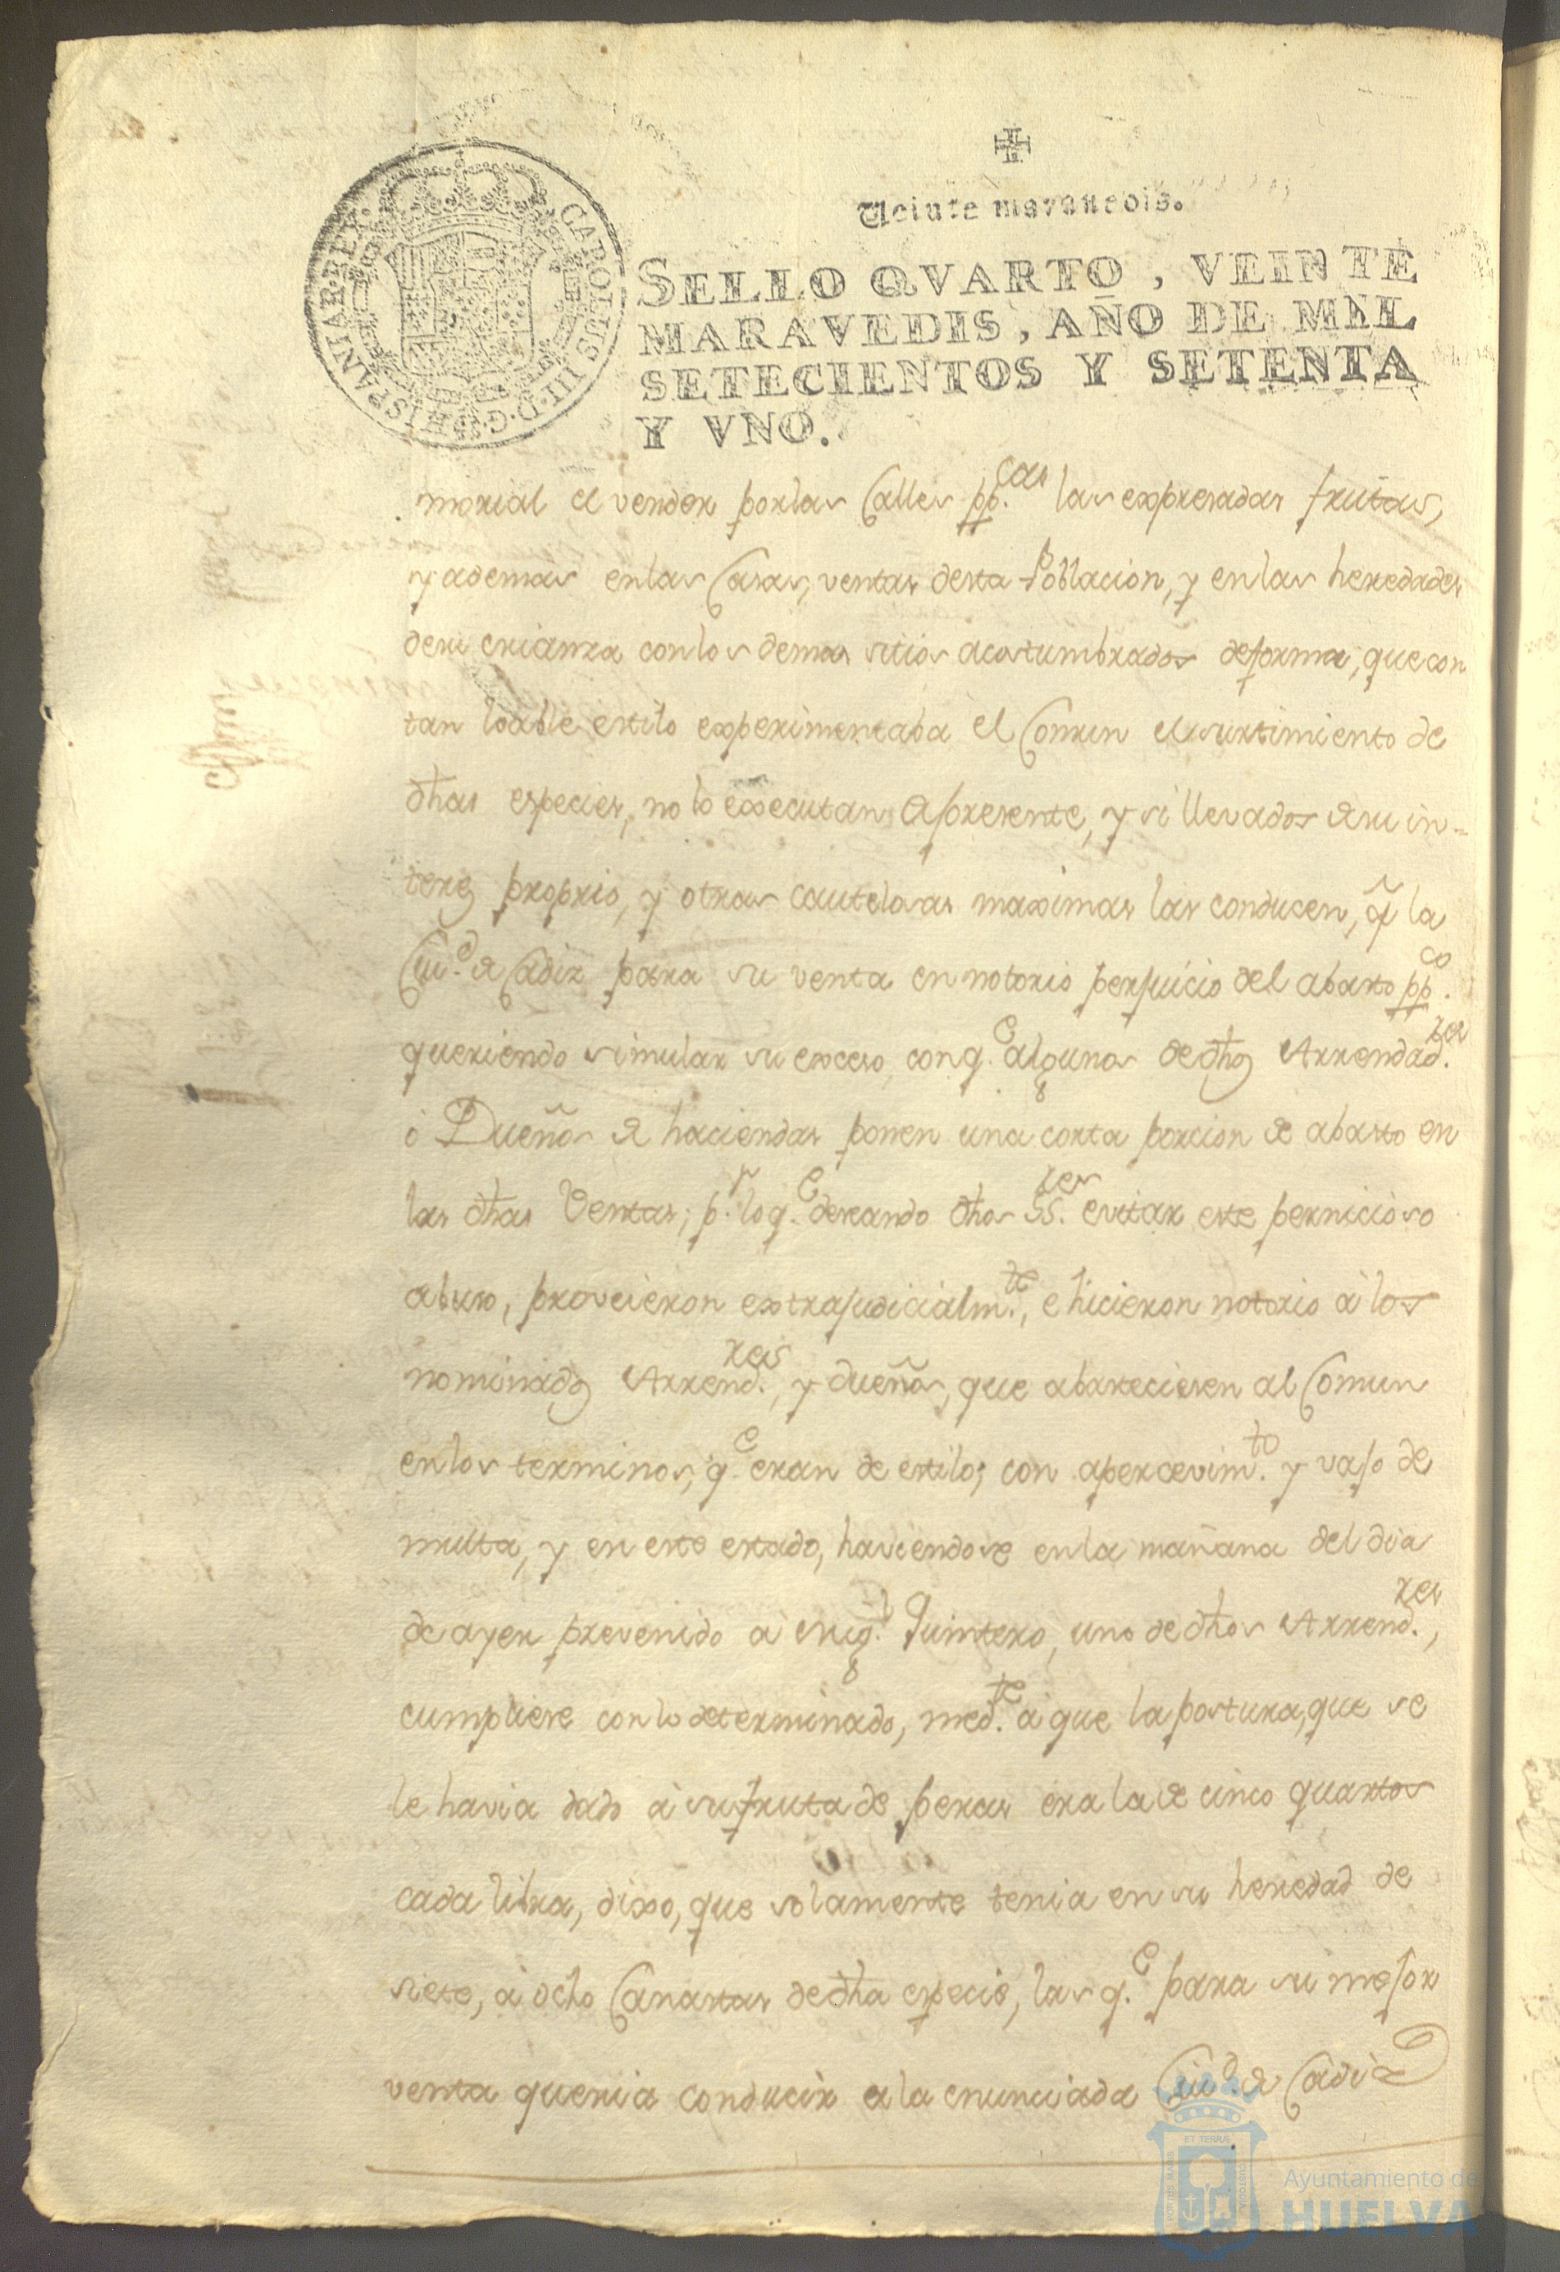 Veinte maravedis.
SELLO QVARTO, VEINTE
MARAVEDIS, AÑO DE MIL
SETECIENTOS Y SETENTA
Y VNO.
CAROLUS III D.G. HISPANIAR. REX
morial el vender por las Calles pp.cas las expresadas frutas,
y ademas en las Casas, ventas desta Poblacion, y en las heredades
de su crianza con los demas sitios acostumbrados de forma, que con
tan loable estilo experimentaba el Comun el surtimiento de
dhas especies, no lo executan al presente, y si llevados de su in-
teres proprio, y otras cautelosas maximas las conducen, a la
Ciu.d de Cadiz para su venta en notorio perjuicio del abasto pp.co
queriendo simular su exceso, con q.e algunos de dhos Arrendad.res
ò Dueños de haciendas ponen una corta porcion de abasto en
las dhas Ventas; p.r lo q.e deseando dhos SS.res evitar este pernicioso
abuso, proveieron extrajudicialm.te, e hicieron notorio à los
nominados Arrend.res, y dueños, que abasteciesen al Comun
en los terminos, q.e eran de estilo; con apercevim.to y vajo de
multa, y en este estado, haviendose en la mañana del dia
de ayer prevenido à Mig.l Quintero, uno de dhos Arrend.res,
cumpliese con lo determinado, med.te à que la postura, que se
le havia dado à su fruta de peras era la de cinco quartos
cada libra, dixo, que solamente tenia en su heredad de
siete, à ocho Canastas de dha especie, las q.e para su mejor
venta queria conducir a la enunciada Ciud.d de Cadiz
Ayuntamiento de
HUELVA